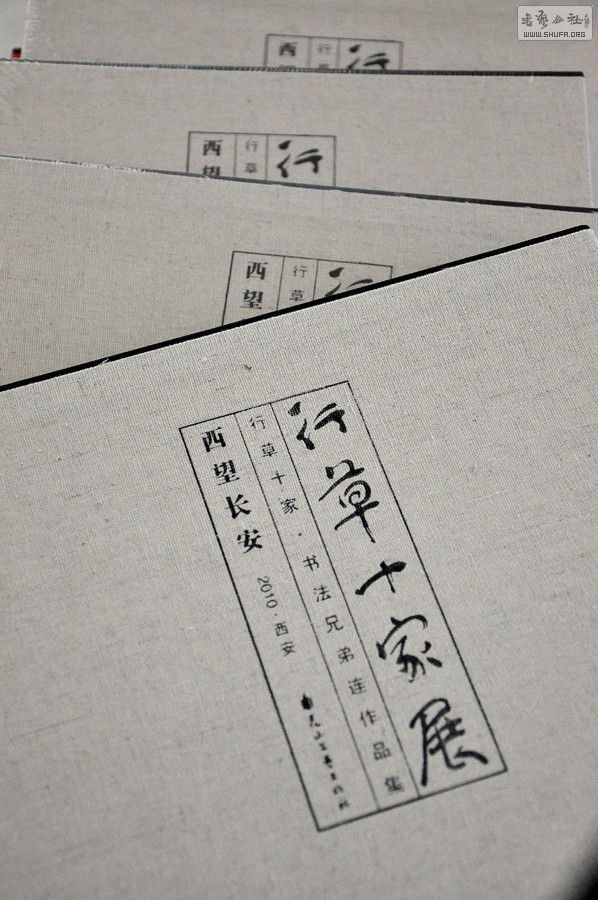 書藝公社
WWW.SHUFA.ORG
西
行草
行
西望
行草
行
西望
行草
行
行草十家展
行草十家·书法兄弟连作品集
西望长安
2010·西安
花山文艺出版社